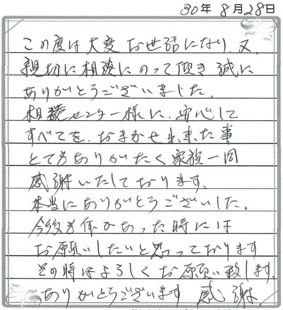 30年 8月28日
この度は大変お世話になり又、
親切に相談にのって頂き誠に
ありがとうございました。
相談センター様に、安心して
すべてを、おまかせ出来た事
とてもありがたく家族一同
感謝いたしております。
本当にありがとうございした。
今後も何かあった時には
お願いしたいと思っております
その時はよろしくお願い致します
ありがとうございます 感謝。